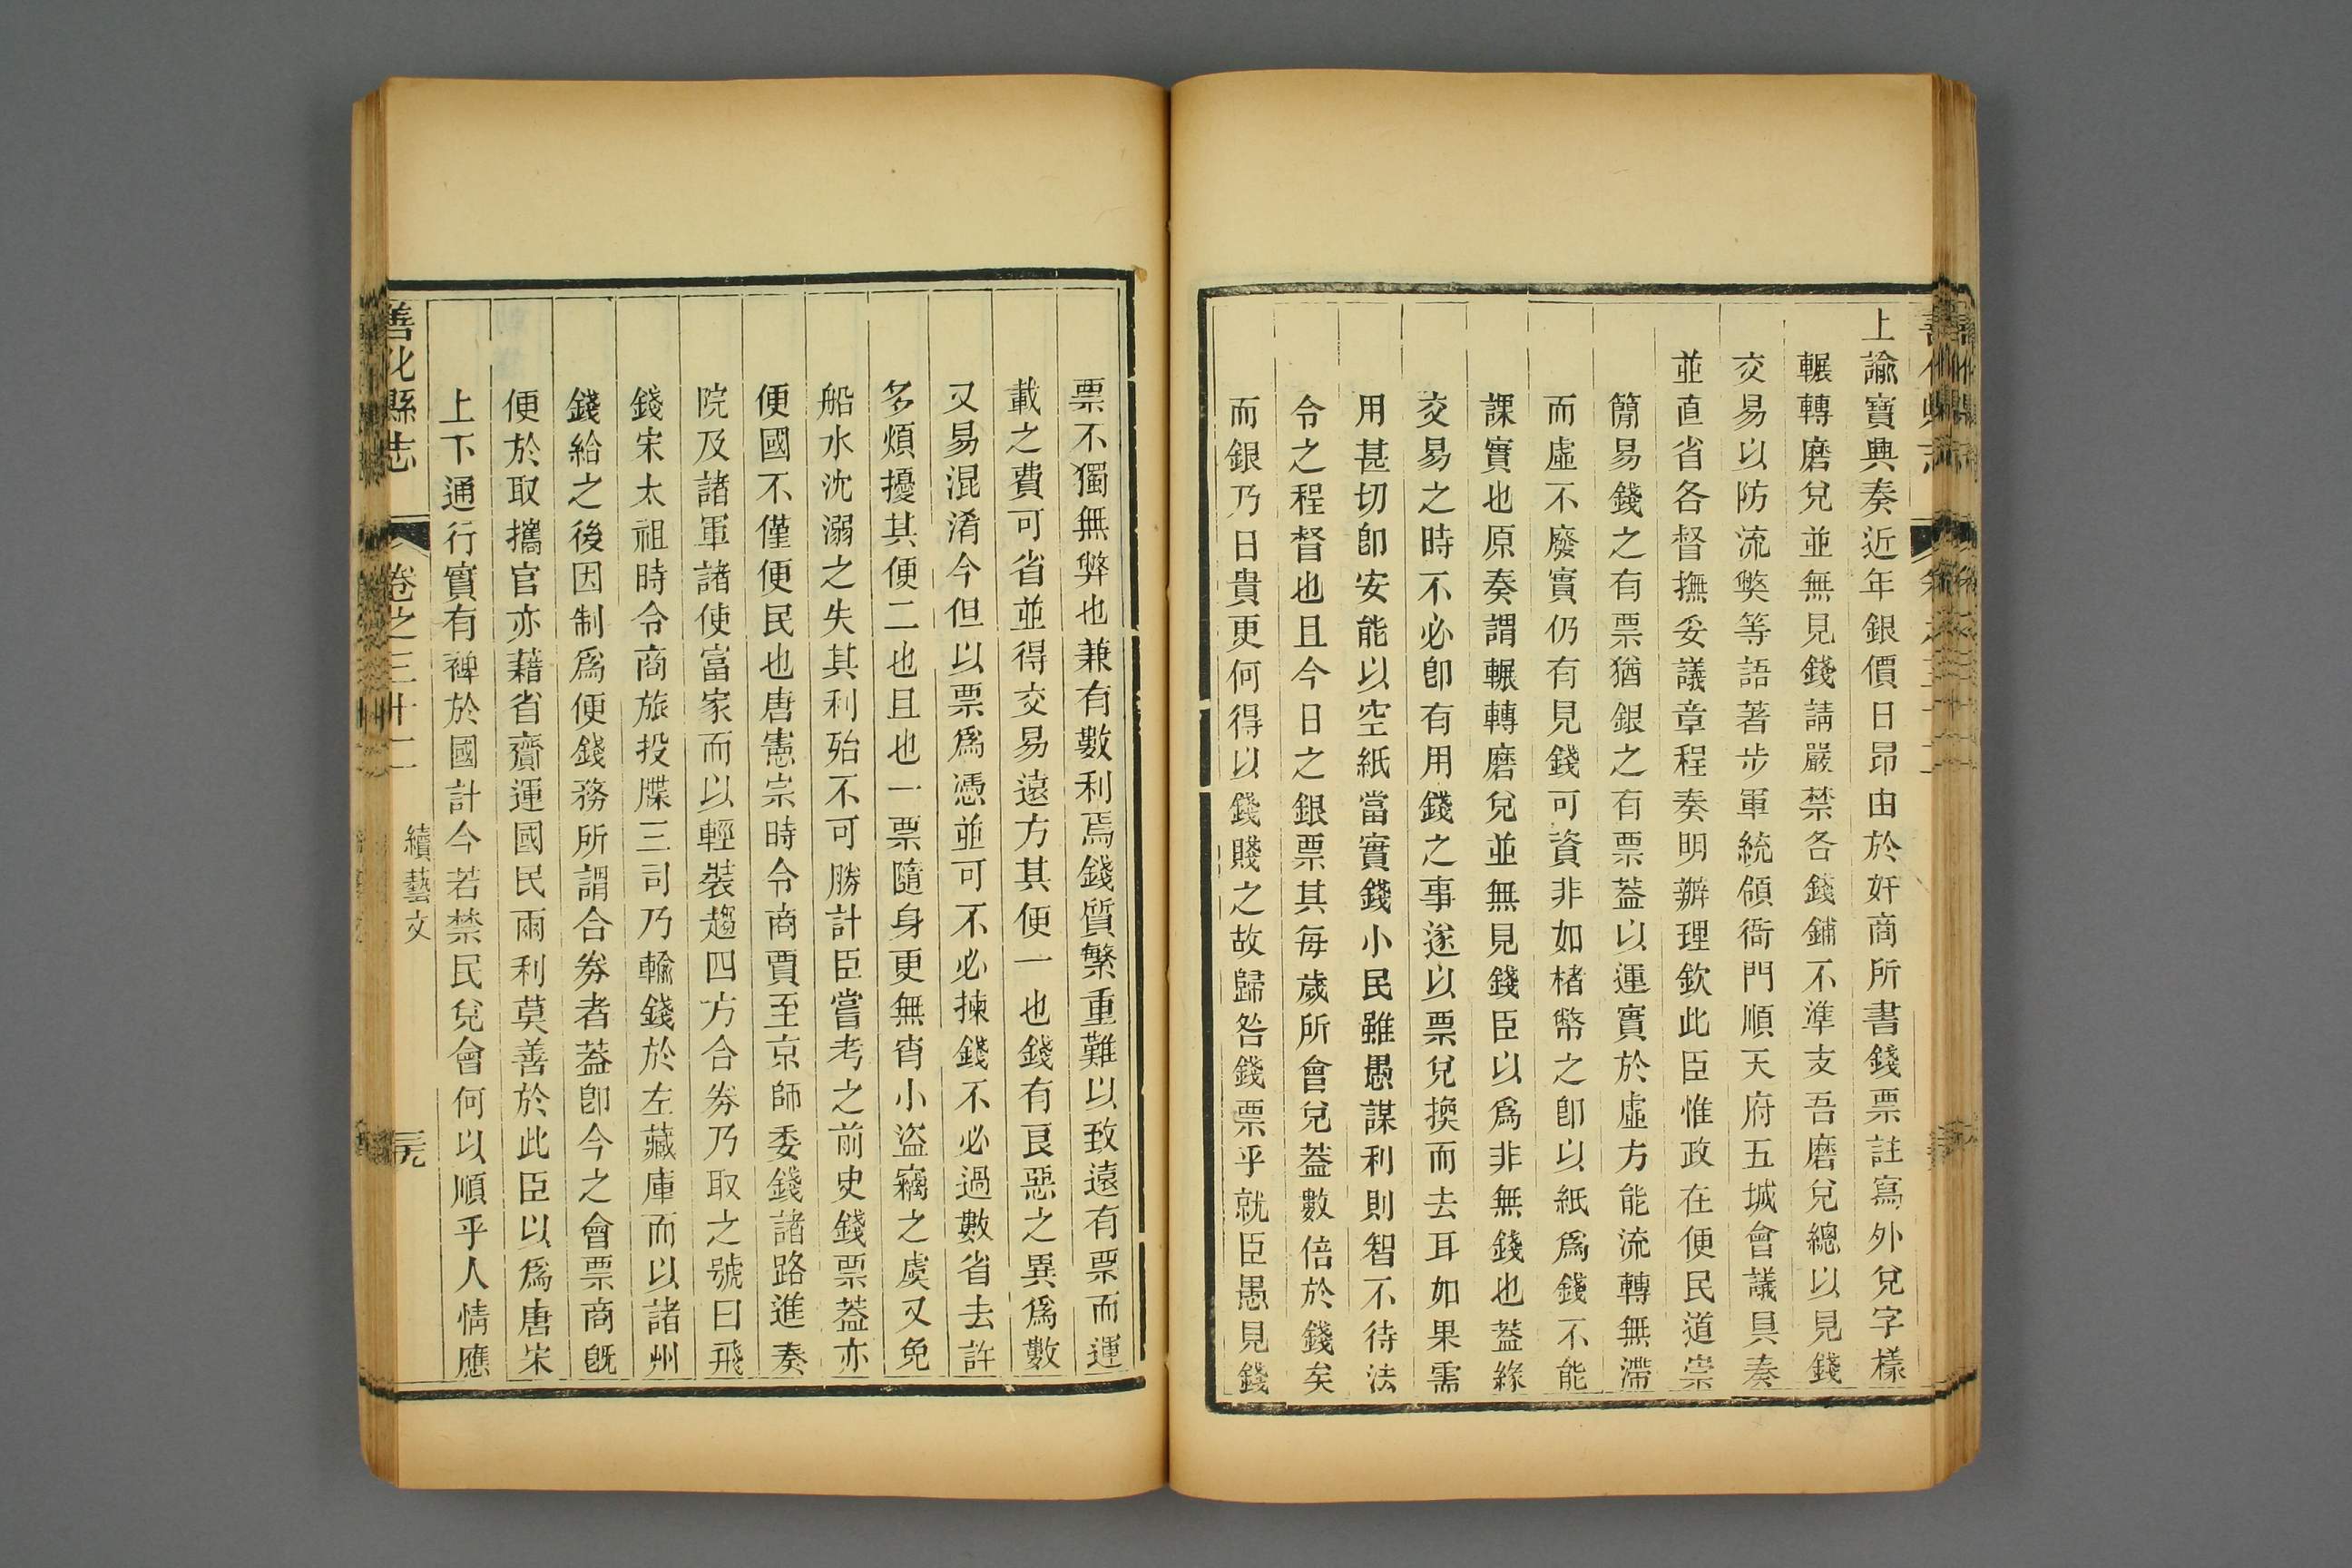 上諭寶興奏近年銀價日昂由於奸商所書錢票註寫外兌字樣
輾轉磨兌並無見錢請嚴禁各錢鋪不準支吾磨兌總以見錢
交易以防流獘等語著步軍統領衙門順天府五城會議具奏
並直省各督撫妥議章程奏明辦理欽此臣惟政在便民道崇
簡易錢之有票猶銀之有票葢以運實於虛方能流轉無滯
而虛不廢實仍有見錢可資非如楮幣之卽以紙爲錢不能
課實也原奏謂輾轉磨兌並無見錢臣以爲非無錢也葢緣
交易之時不必卽有用錢之事遂以票兌換而去耳如果需
用甚切卽安能以空紙當實錢小民雖愚謀利則智不待法
令之程督也且今日之銀票其每歲所會兌葢數倍於錢矣
而銀乃日貴更何得以錢賤之故歸咎錢票乎就臣愚見錢
票不獨無弊也兼有數利焉錢質繁重難以致遠有票而運
載之費可省並得交易遠方其便一也錢有良惡之異爲數
又易混淆今但以票爲憑並可不必揀錢不必過數省去許
多煩擾其便二也且也一票隨身更無宵小盜竊之虞又免
船水沈溺之失其利殆不可勝計臣嘗考之前史錢票葢亦
便國不僅便民也唐憲宗時令商賈至京師委錢諸路進奏
院及諸軍諸使富家而以輕裝趨四方合券乃取之號曰飛
錢宋太祖時令商旅投牒三司乃輸錢於左藏庫而以諸州
錢給之後因制爲便錢務所謂合券者葢卽今之會票商旣
便於取攜官亦藉省齎運國民兩利莫善於此臣以爲唐宋
上下通行實有裨於國計今若禁民兌會何以順乎人情應
善化縣志 卷之三十二 續藝文